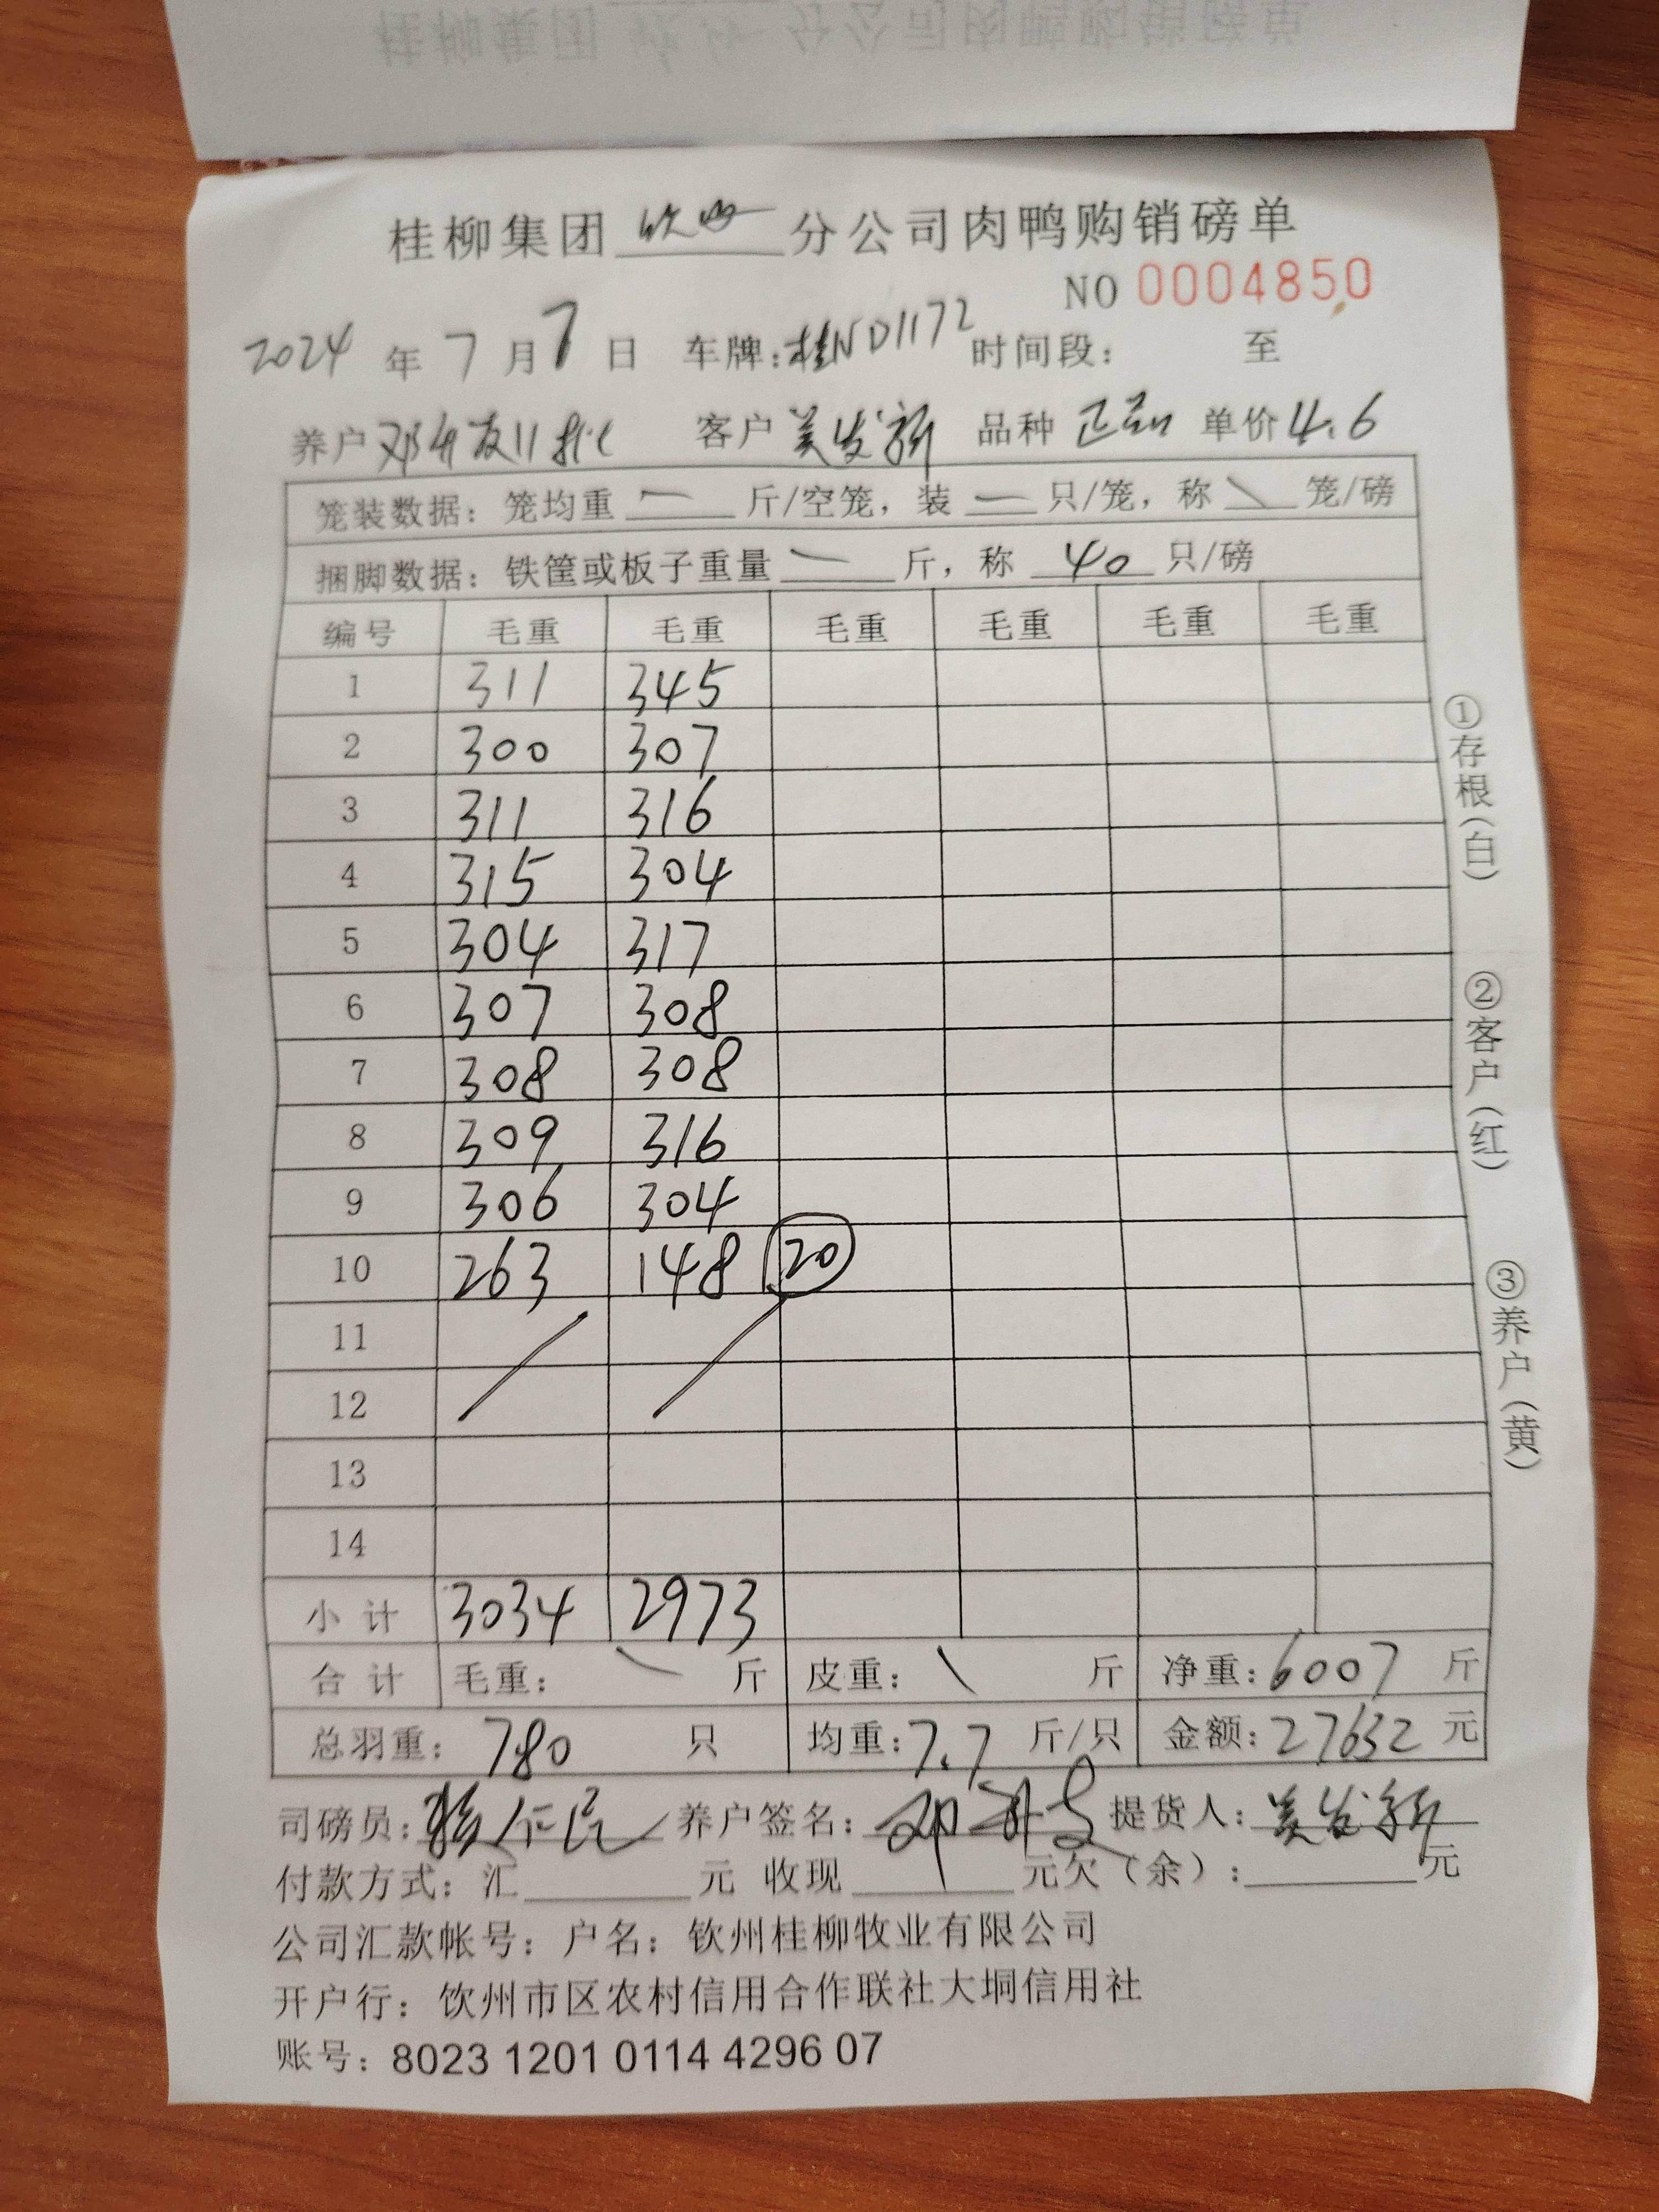 桂柳集团 钦州 分公司肉鸭购销磅单
NO 0004850
2024 年 7 月 7 日 车牌:桂ND1172 时间段: 至
养户 邓 友 11批 客户 吴发新 品种 正品 单价 4.6
笼装数据：笼均重 — 斤/空笼，装 — 只/笼，称 \ 笼/磅
捆脚数据：铁筐或板子重量 — 斤，称 40 只/磅
编号 毛重 毛重 毛重 毛重 毛重 毛重
1 311 345
2 300 307
3 311 316
4 315 304
5 304 317
6 307 308
7 308 308
8 309 316
9 306 304
10 263 148 20
11
12
13
14
小计 3034 2973
合计 毛重： \ 斤 皮重： \ 斤 净重：6007 斤
总羽重： 780 只 均重：7.7 斤/只 金额：27632 元
司磅员： 仁民 养户签名：邓 提货人：吴发新
付款方式：汇 元 收现 元欠（余）： 元
公司汇款帐号：户名：钦州桂柳牧业有限公司
开户行：钦州市区农村信用合作联社大垌信用社
账号：8023 1201 0114 4296 07
①存根(白)
②客户(红)
③养户(黄)